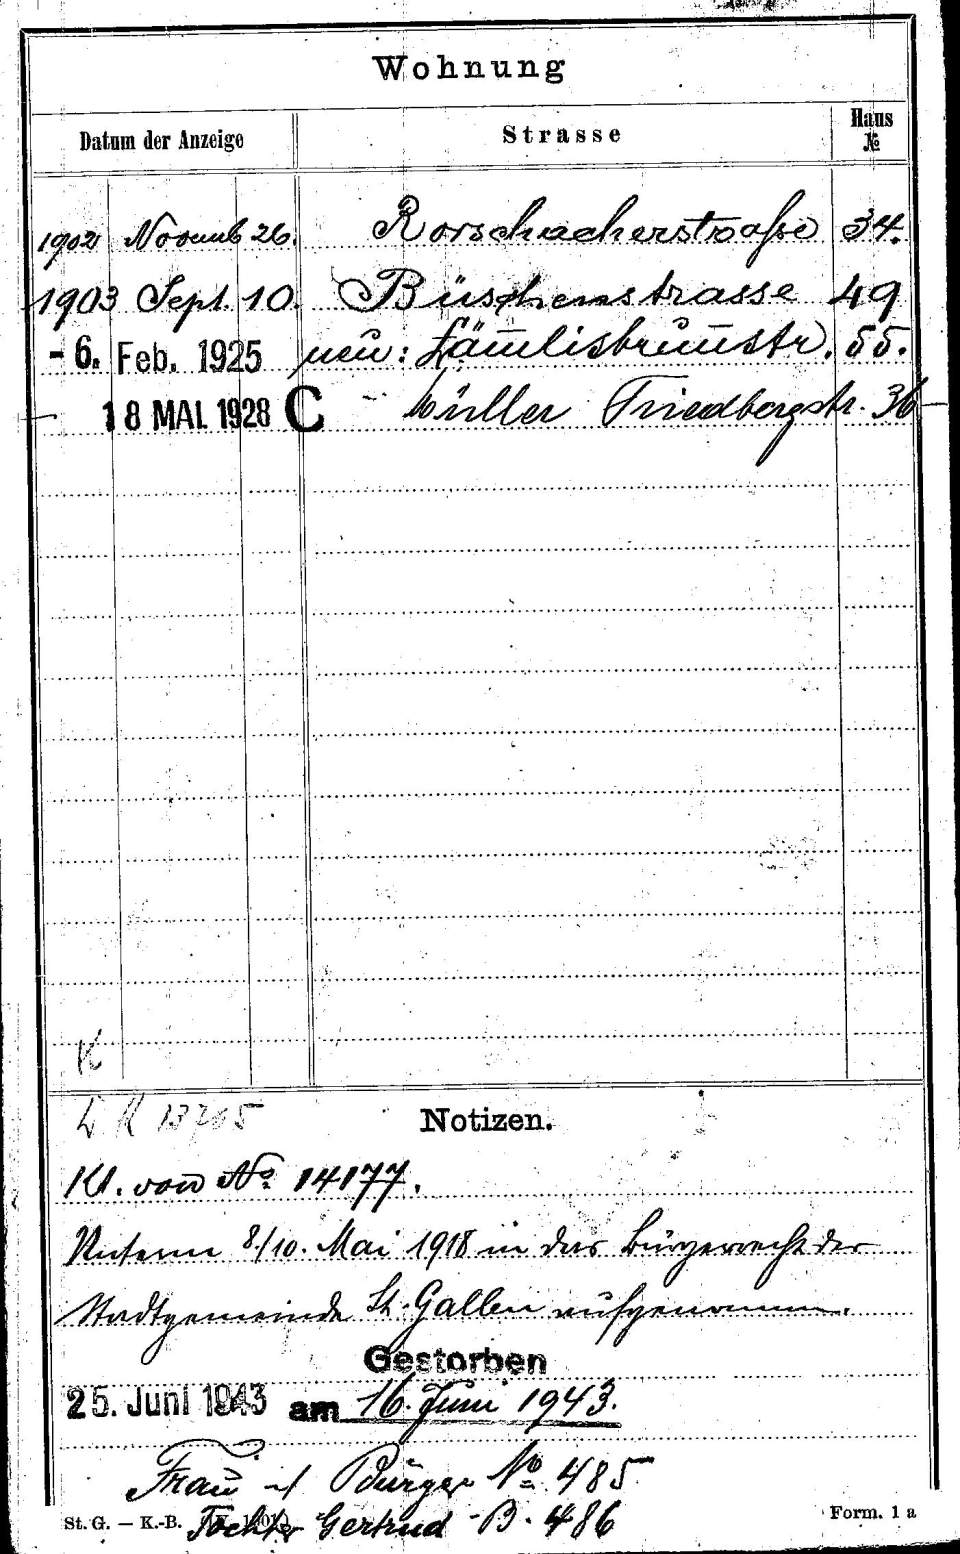 Wohnung
Datum der Anzeige Strasse Haus №
1902 Novemb 26. Rorschacherstraße 34.
1903 Sept. 10. Büschenstrasse 49
- 6. Feb. 1925 neu: Lämlisbrunnstr. 55.
18 MAI 1928 C Müller Friedbergstr. 36
K
13705
Notizen.
Kl. von No. 14177.
Unterm 8./10. Mai 1918 in das Bürgerrecht der
Stadtgemeinde St. Gallen aufgenommen.
Gestorben
25. Juni 1943 am 16. Juni 1943.
Frau Bürger No 485
Tochter Gertrud B. 486
St. G. – K.-B. Form. 1 a